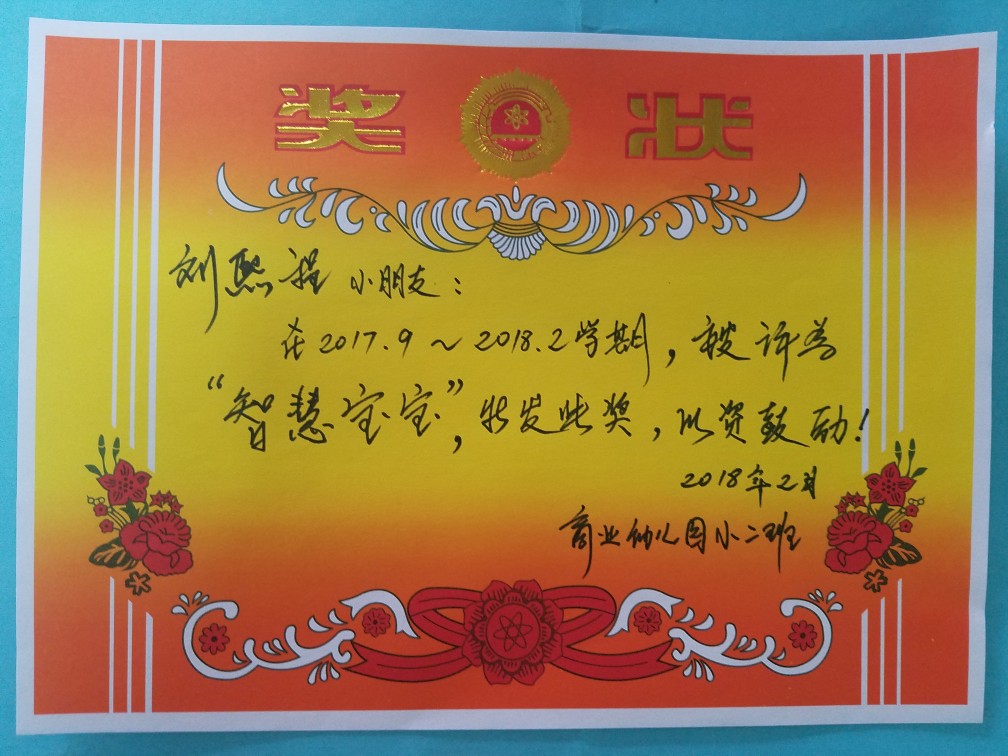 奖状
刘熙程 小朋友：
在2017.9～2018.2学期，被评为
“智慧宝宝”，特发此奖，以资鼓励！
2018年2月
商业幼儿园小二班